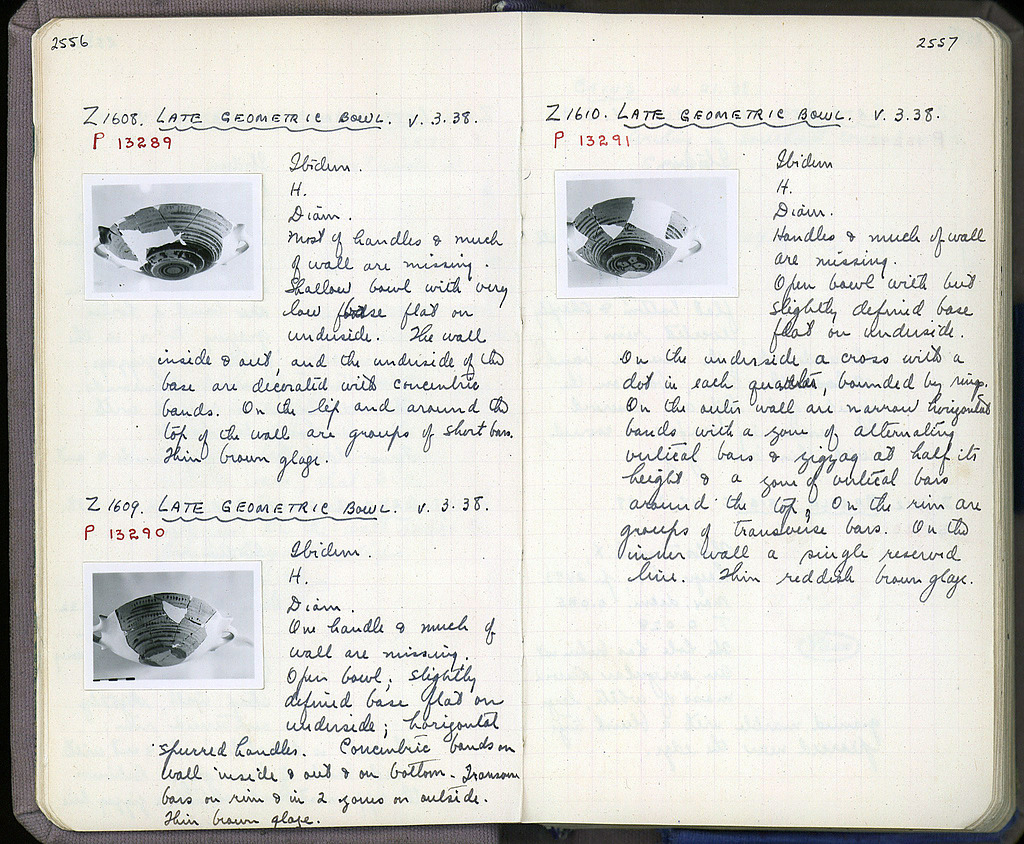 2556
Z 1608. LATE GEOMETRIC BOWL. V. 3. 38.
P 13289
Ibidem.
H.
Diam.
Most of handles & much
of wall are missing.
Shallow bowl with very
low base flat on
underside. The wall
inside & out, and the underside of the
base are decorated with concentric
bands. On the lip and around the
top of the wall are groups of short bars.
Thin brown glaze.
Z 1609. LATE GEOMETRIC BOWL. V. 3. 38.
P 13290
Ibidem.
H.
Diam.
One handle & much of
wall are missing.
Open bowl; slightly
defined base flat on
underside; horizontal
spurred handles. Concentric bands on
wall inside & out & on bottom. Transom
bars on rim & in 2 zones on outside.
Thin brown glaze.
2557
Z 1610. LATE GEOMETRIC BOWL. V. 3. 38.
P 13291
Ibidem
H.
Diam.
Handles & much of wall
are missing.
Open bowl with but
slightly defined base
flat on underside.
On the underside a cross with a
dot in each quarter, bounded by rings.
On the outer wall are narrow horizontal
bands with a zone of alternating
vertical bars & zigzag at half its
height & a zone of vertical bars
around the top. On the rim are
groups of transverse bars. On the
inner wall a single reserved
line. Thin reddish brown glaze.